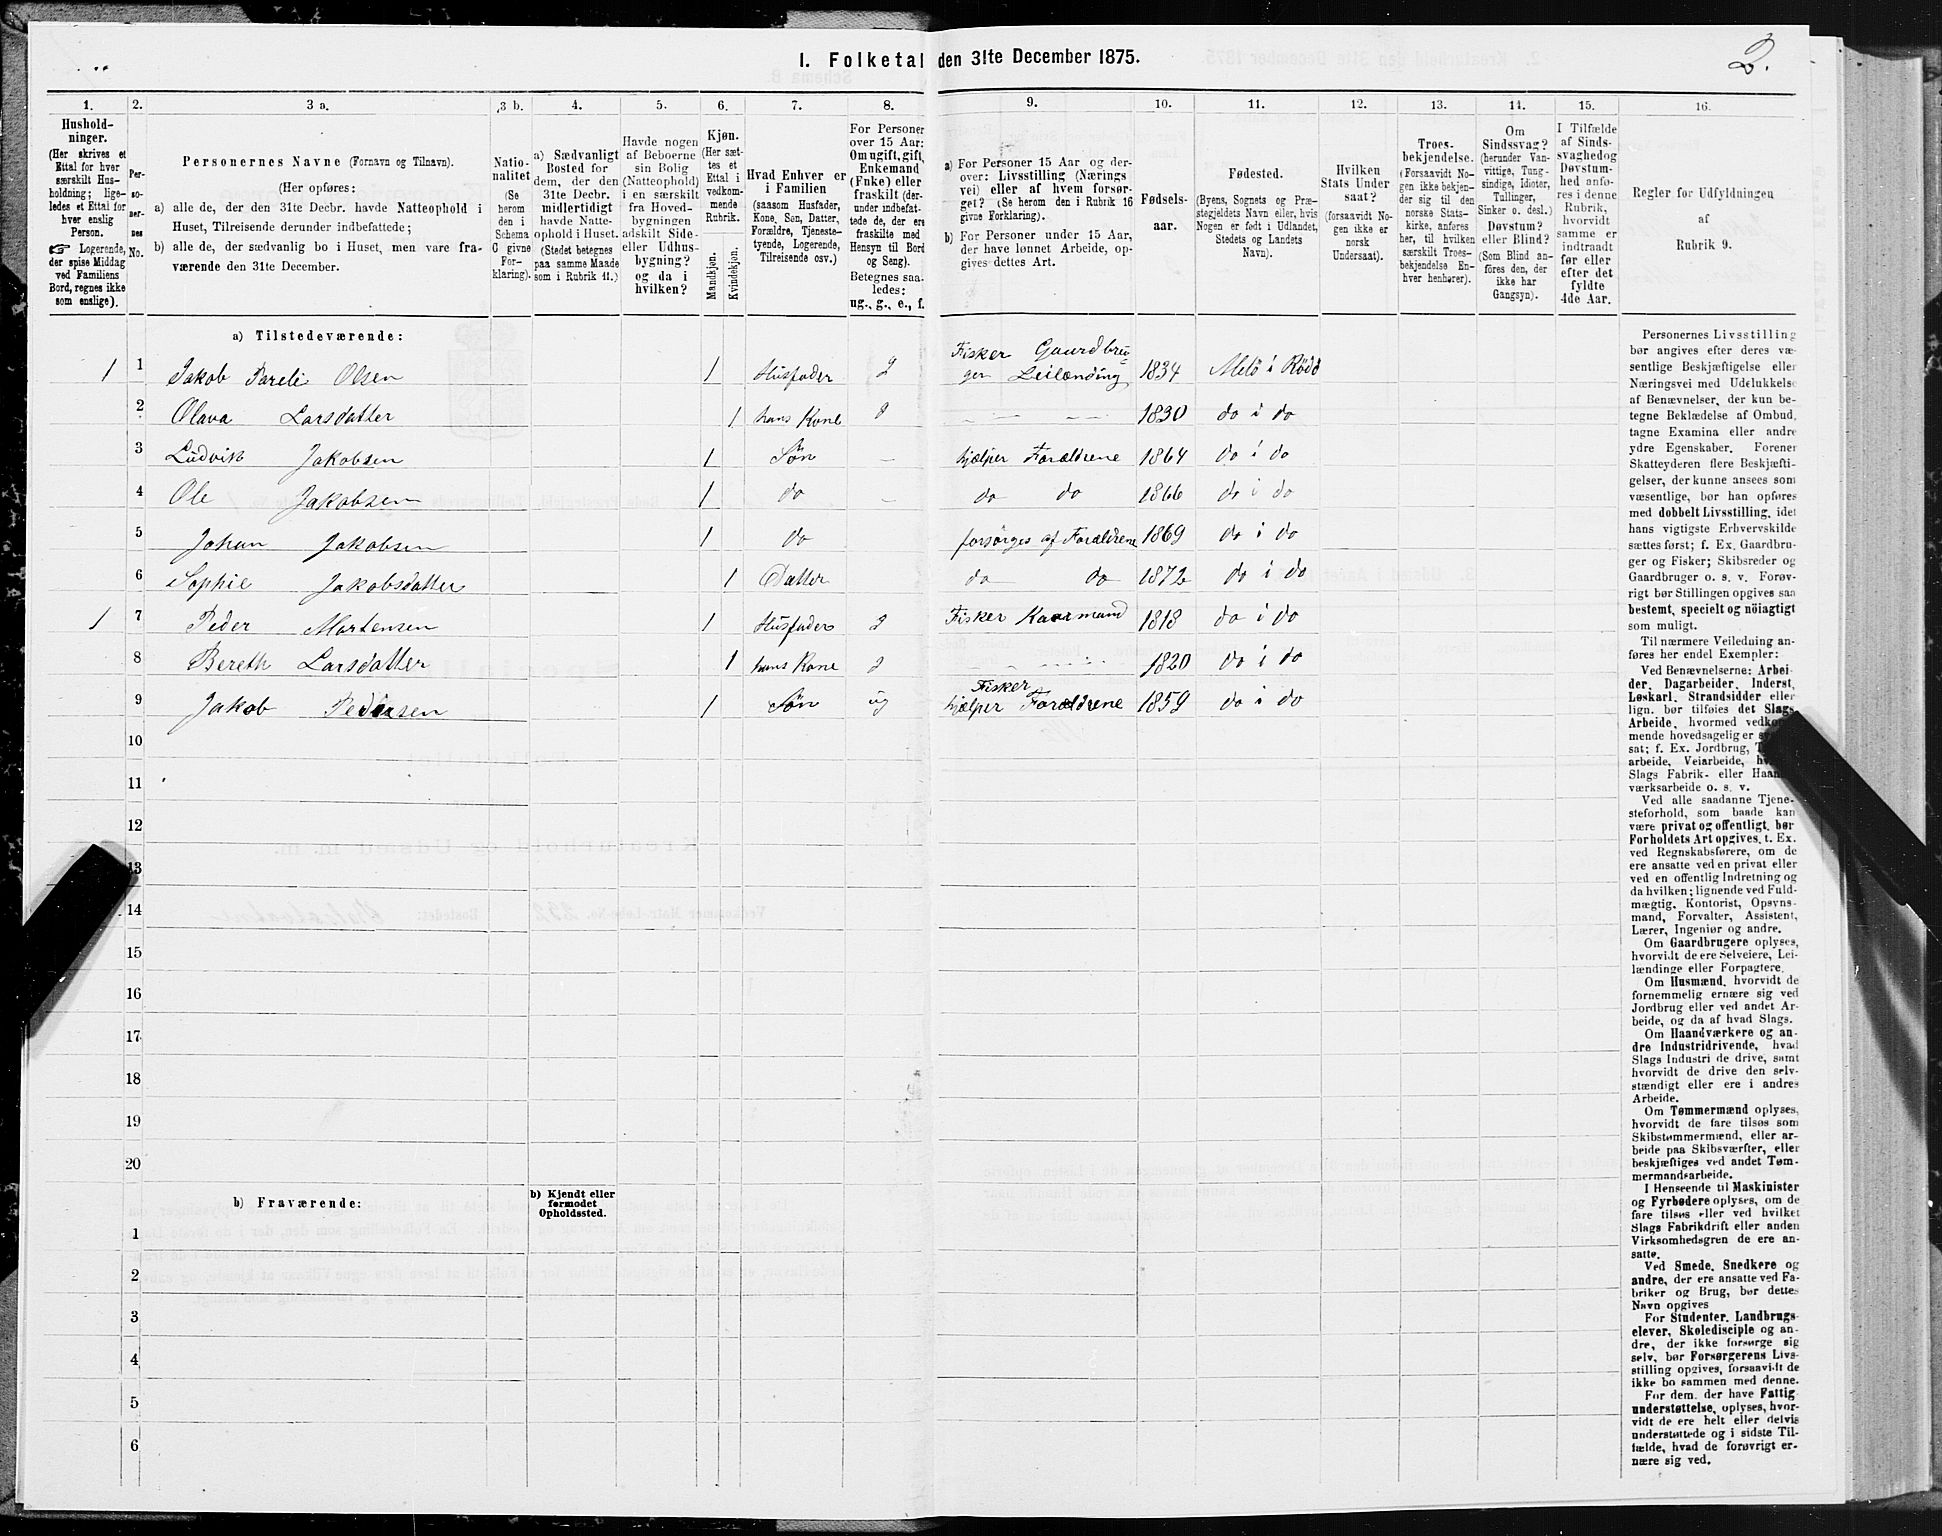 I. Folketal den 31te December 1875.
2.
1.
Hushold-
ninger.
(Her skrives et
Ettal for hver
særskilt Hus-
holdning; lige-
ledes et Ettal for
hver enslig
Person.
☞ Logerende,
der spise Middag
ved Familiens
Bord, regnes ikke
som enslige).
2.
Per-
so-
ner-
nes
No.
3 a.
Personernes Navne (Fornavn og Tilnavn).
(Her opføres:
a) alle de, der den 31te Decbr. havde Natteophold i
Huset, Tilreisende derunder indbefattede;
b) alle de, der sædvanlig bo i Huset, men vare fra-
værende den 31te December.
3 b.
Natio-
nalitet
(Se
herom
den i
Schema
C givne
For-
klaring).
4.
a) Sædvanligt
Bosted for
dem, der den
31te Decbr.
midlertidigt
havde Natte-
ophold i Huset.
(Stedet betegnes
paa samme Maade
som i Rubrik 11.)
5.
Havde nogen
af Beboerne
sin Bolig
(Natteophold)
i en særskilt
fra Hoved-
bygningen
adskilt Side-
eller Udhus-
bygning?
og da i
hvilken?
6.
Kjøn.
(Her sæt-
tes et
Ettal i
vedkom-
mende
Rubrik.
Mandkjøn.
Kvindekjøn.
7.
Hvad Enhver er
i Familien
(saasom Husfader,
Kone, Søn, Datter,
Forældre, Tjeneste-
tyende, Logerende,
Tilreisende osv.)
8.
For Personer
over 15 Aar:
Om ugift, gift,
Enkemand
(Enke) eller
fraskilt (der-
under indbefat-
tede de, der ere
fraskilte med
Hensyn til Bord
og Seng).
Betegnes saa-
ledes:
ug., g., e., f.
9.
a) For Personer 15 Aar og der-
over: Livsstilling (Nærings-
vei) eller af hvem forsør-
get? (Se herom den i Rubrik 16
givne Forklaring).
b) For Personer under 15 Aar,
der have lønnet Arbeide, op-
gives dettes Art.
10.
Fødsels-
aar.
11.
Fødested.
(Byens, Sognets og Præ-
stegjeldets Navn eller, hvis
Nogen er født i Udlandet,
Stedets og Landets
Navn).
12.
Hvilken
Stats Under-
saat?
(forsaavidt No-
gen ikke er
norsk
Undersaat).
13.
Troes-
bekjendelse.
(Forsaavidt No-
gen ikke bekjen-
der sig til den
norske Stats-
kirke, anføres
her, til hvilken
særskilt Troes-
bekjendelse En-
hver henhører).
14.
Om
Sindssvag?
(herunder Van-
vittige, Tung-
sindige, Idioter,
Tullinger,
Sinker o. desl.)
Døvstum?
eller Blind?
(Som Blind an-
føres den, der
ikke har
Gangsyn).
15.
I Tilfælde
af Sinds-
svaghed og
Døvstum-
hed anfø-
res i denne
Rubrik,
hvorvidt
samme er
indtraadt
før eller
efter det
fyldte
4de Aar.
16.
Regler for Udfyldningen
af
Rubrik 9.
a) Tilstedeværende:
1 1 Jakob Pareli Olsen 1 Husfader g Fisker Gaardbru-
ger Leilænding 1834 Melö i Rödö
2 Olava Larsdatter 1 hans Kone g 1830 do i do
3 Ludvik Jakobsen 1 Søn hjelper Forældrene 1864 do i do
4 Ole Jakobsen 1 do do do 1866 do i do
5 Johan Jakobsen 1 do forsörges af Forældrene 1869 do i do
6 Sophie Jakobsdatter 1 Datter do do 1872 do i do
1 7 Peder Mortensen 1 Husfader g Fisker Kaarmand 1818 do i do
8 Bereth Larsdatter 1 hans Kone g 1820 do i do
9 Jakob Pedersen 1 Søn ug Fisker
hjælper Forældrene 1859 do i do
10
11
12
13
14
15
16
17
18
19
20
b) Fraværende:
b) Kjendt eller
formodet
Opholdssted.
1
2
3
4
5
6
Personernes Livsstilling
bør angives efter deres væ-
sentlige Beskjæftigelse eller
Næringsvei med Udelukkelse
af Benævnelser, der kun be-
tegne Beklædelse af Ombud,
tagne Examina eller andre
ydre Egenskaber. Forener
Skatteyderen flere Beskjæfti-
gelser, der kunne ansees som
væsentlige, bør han opføres
med dobbelt Livsstilling, idet
hans vigtigste Erhvervskilde
sættes først; f. Ex. Gaardbru-
ger og Fisker; Skibsreder og
Gaardbruger o. s. v. Forøv-
rigt bør Stillingen opgives saa
bestemt, specielt og nøiagtigt
som muligt.
Til nærmere Veiledning an-
føres her endel Exempler:
Ved Benævnelserne: Arbei-
der, Dagarbeider, Inderst,
Løskarl, Strandsidder eller
lign. bør tilføies det Slags
Arbeide, hvormed vedkom-
mende hovedsagelig er
sat; f. Ex. Jordbrug,
arbeide, Veiarbeide,
Slags Fabrik- eller Haand-
værksarbeide o. s. v.
Ved alle saadanne Tjene-
steforhold, som baade kan
være privat og offentligt, bør
Forholdets Art opgives, t. Ex.
ved Regnskabsførere, om de
ere ansatte ved en privat eller
ved en offentlig Indretning og
da hvilken; lignende ved Fuld-
mægtig, Kontorist, Opsyns-
mand, Forvalter, Assistent,
Lærer, Ingeniør og andre.
Om Gaardbrugere oplyses,
hvorvidt de ere Selveiere, Lei-
lændinge eller Forpagtere.
Om Husmænd, hvorvidt de
fornemmelig ernære sig ved
Jordbrug eller ved andet Ar-
beide, og da af hvad Slags.
Om Haandværkere og an-
dre Industridrivende, hvad
Slags Industri de drive, samt
hvorvidt de drive den selv-
stændigt eller ere i andres
Arbeide.
Om Tømmermænd oplyses,
hvorvidt de fare tilsøs som
Skibstømmermænd, eller ar-
beide paa Skibsværfter, eller
beskjæftiges ved andet Tøm-
mermandsarbeide.
I Henseende til Maskinister
og Fyrbødere oplyses, om de
fare tilsøs eller ved hvilket
Slags Fabrikdrift eller anden
Virksomhedsgren de ere an-
satte.
Ved Smede, Snedkere og
andre, der ere ansatte ved Fa-
briker og Brug, bør dettes
Navn opgives
For Studenter, Landbrugs-
elever, Skoledisciple og an-
dre, der ikke forsørge sig
selv, bør Forsørgerens Livs-
stilling opgives, forsaavidt de
ikke bo sammen med denne.
For dem, der have Fattig-
understøttelse, oplyses, hvor-
vidt de ere helt eller delvis
understøttede og i sidste Til-
fælde, hvad de forøvrigt er-
nære sig ved.